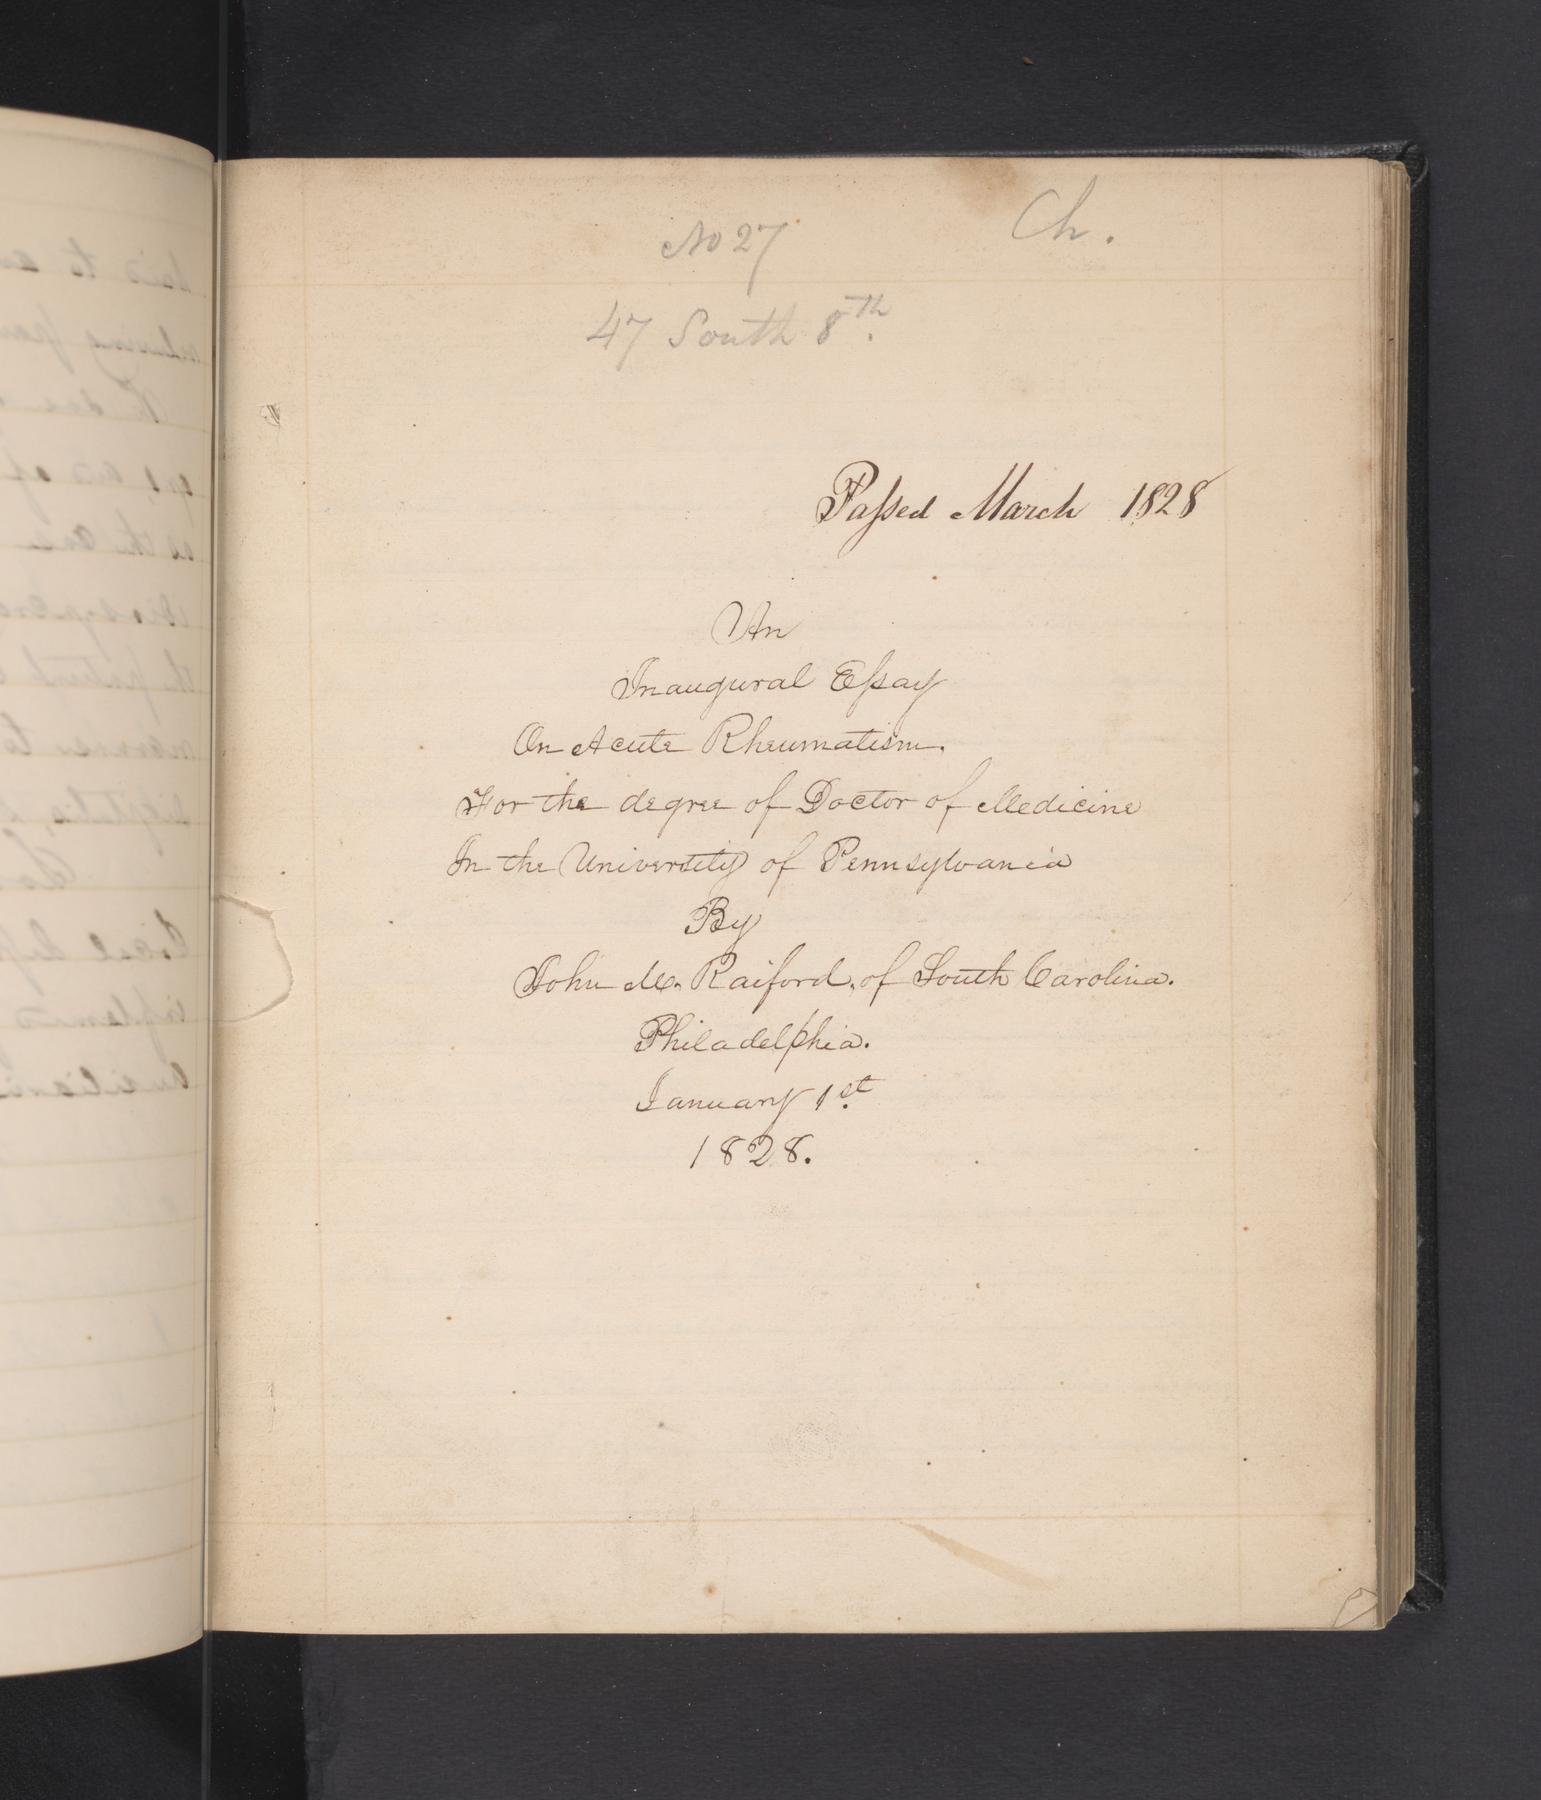 No 27
Ch.
47 South 8th.
Paſsed March 1828
An
Inaugural Eſsay
On Acute Rheumatism.
For the degree of Doctor of Medicine
In the University of Pennsylvania
By
John M. Raiford, of South Carolina.
Philadelphia.
January 1st.
1828.